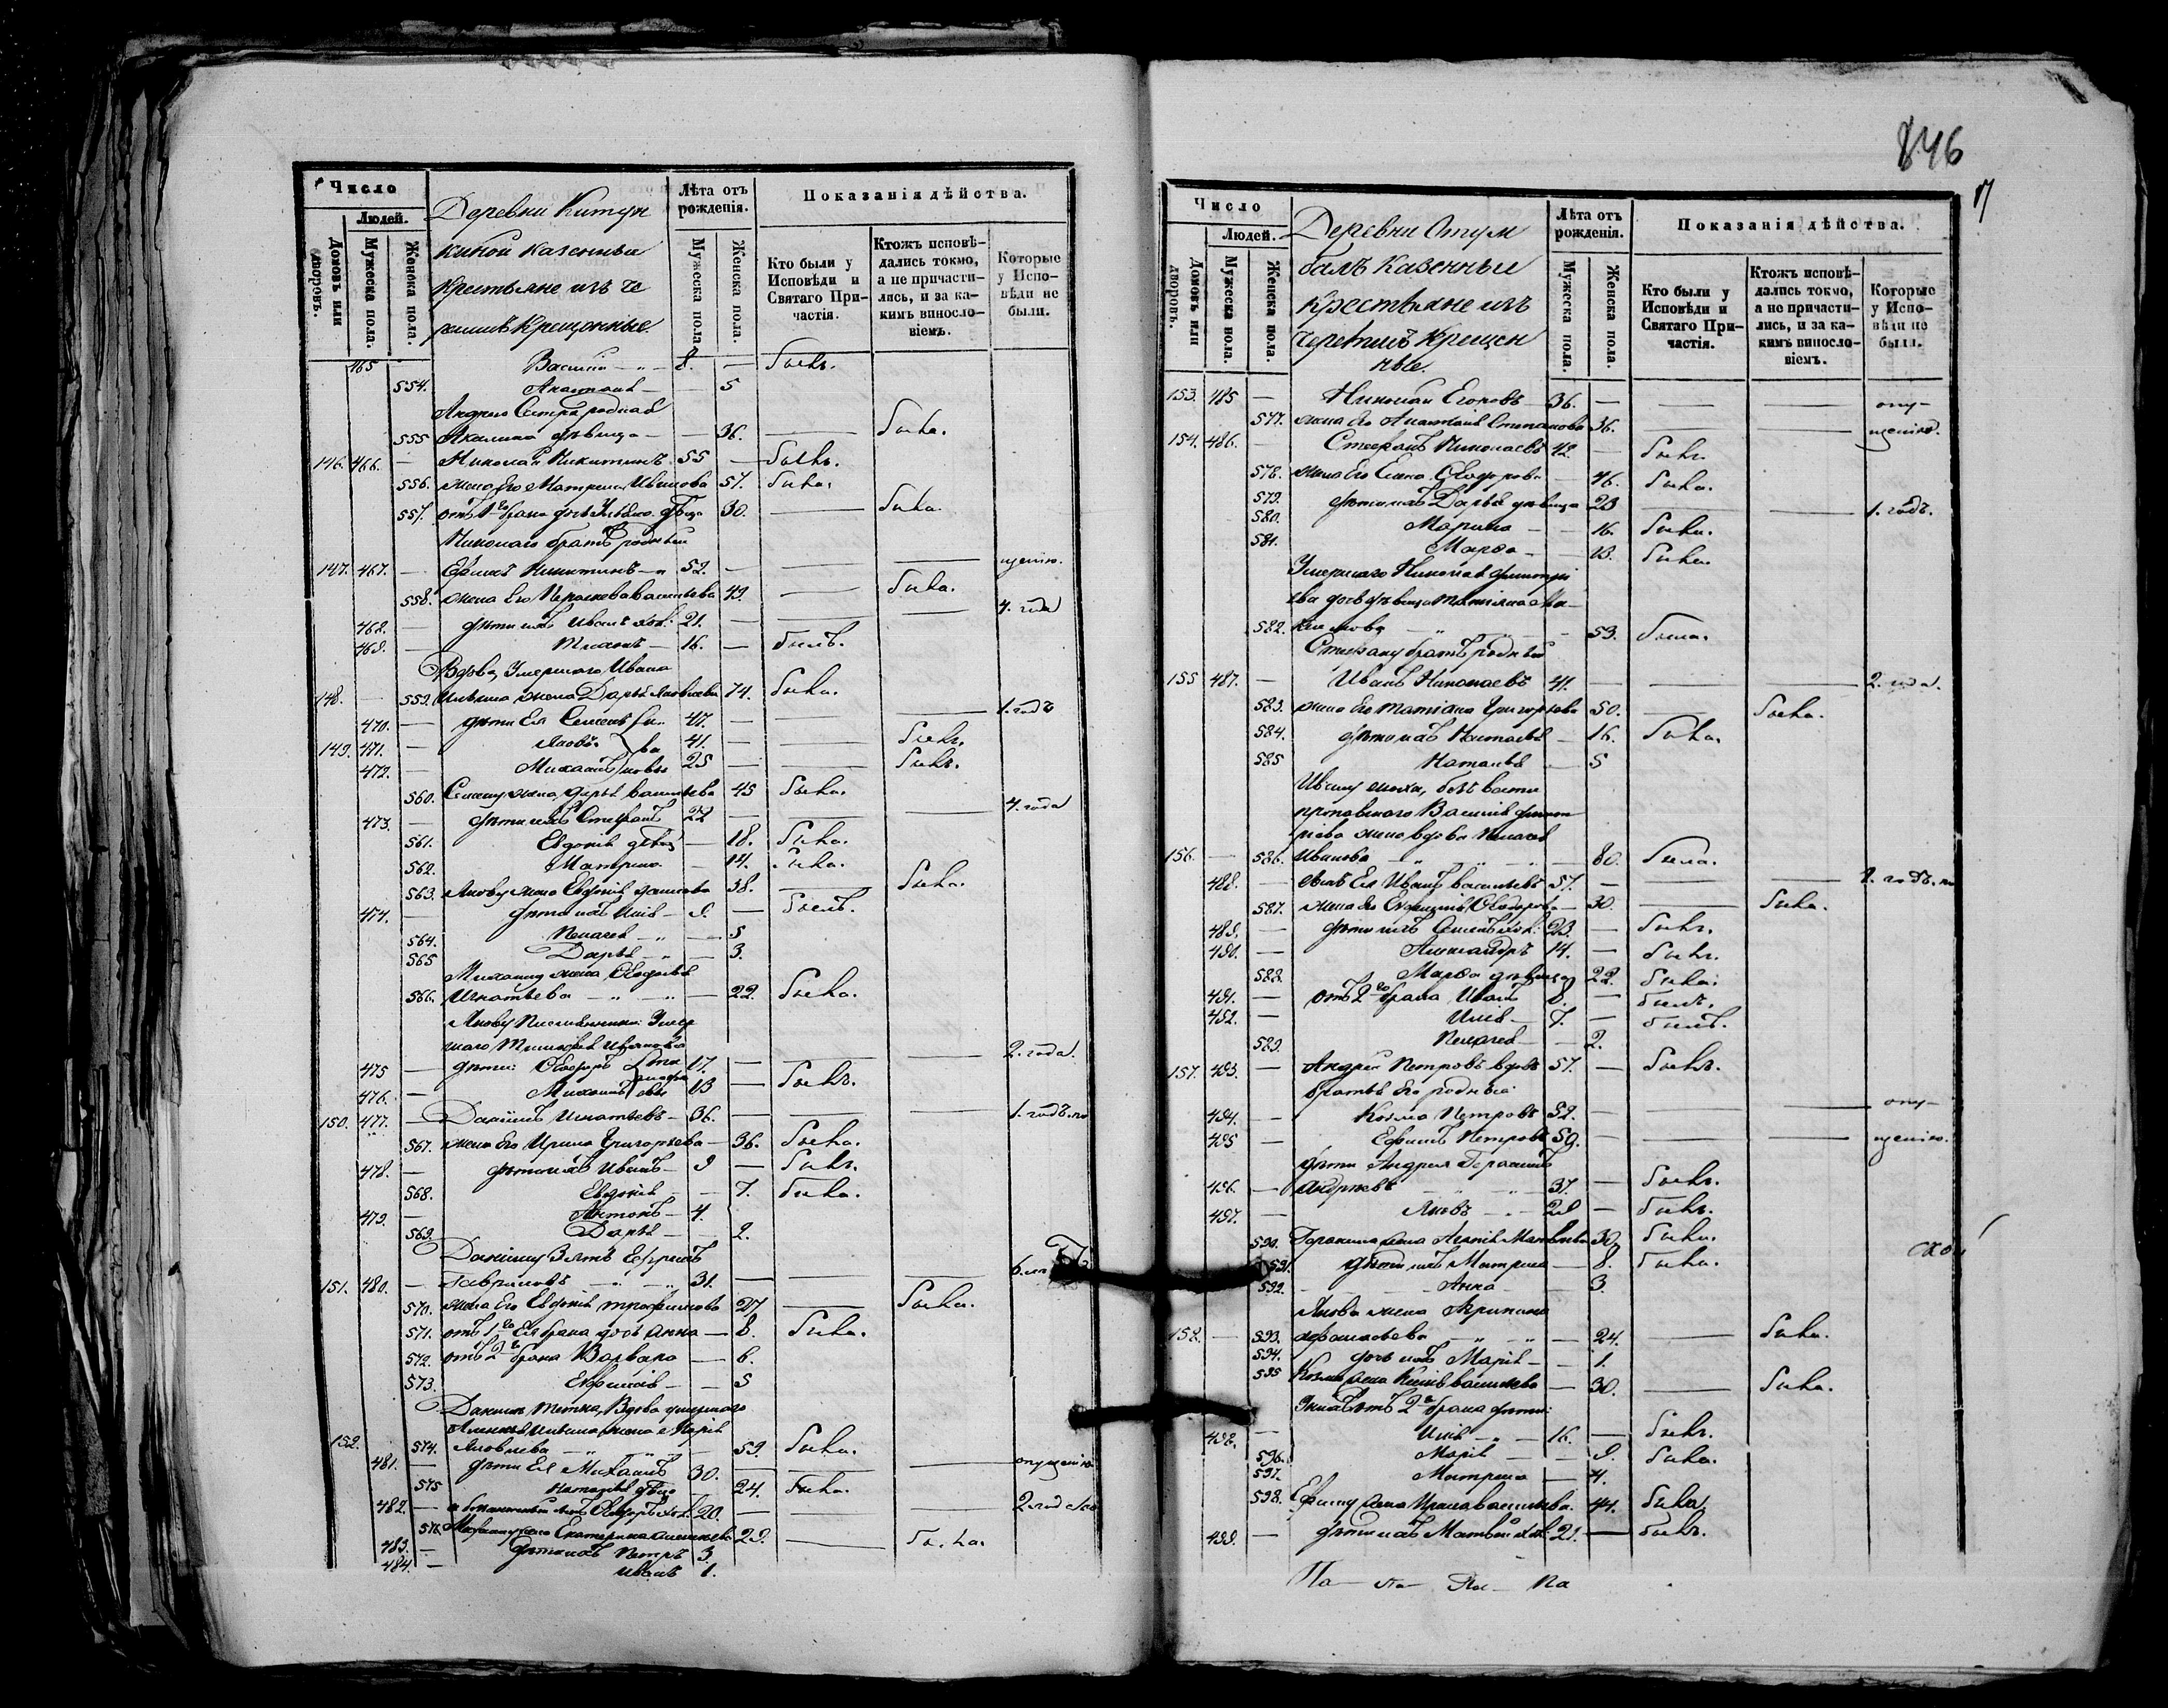 Число
Людей.
Домовъ или дворовъ.
Мужеска пола.
Женска пола.
Деревни Китун
киной казенныи
крестьяне изъ че
ремисъ крещонные.
Лѣта отъ рожденія.
Мужеска пола.
Женска пола.
Показанія дѣйства.
Кто были у Исповѣди и Святаго Причастія.
Ктожъ исповѣдались токмо, а не причастились, и за какимъ винословіемъ.
Которые у Исповѣди не были.
465 — Василій — 8. — былъ.
554. Анастасія — 5
Андрея Сестра родная
555 Акилина дѣвица — 36. — была.
146. 466. — Николай Никитинъ 55 — былъ.
556. жена его Матрена Иванова 57. была.
557. отъ 1го брака дочь Ульяна дѣвица 30. — была.
Николаю братъ родный
147. 467. — Ефимъ Никитинъ — 52. — — — щенію.
558. жена его Парасковья Васильева 49. — была.
468. — дѣти ихъ Иванъ хол: 21. — — — 4. года
469. — Тихонъ — 16. — былъ.
Вдова, Умершаго Ивана
148. — 559. жена Дарья Яковлева 74. была.
470. — дѣти ея Семенъ 47. — — — 1. годъ
149. 471. — Яковъ 41. — — былъ.
472. — Михаилъ 25 — — былъ.
560. Семену жена, Дарья Васильева 45 была.
473. — дѣти ихъ Стефанъ 22 — — — 4. года
561. Евдокія — 18. была.
562. Матрена — 14. была.
563. Якову жена Евдокія 38. — была.
474. — дѣти ихъ Илія — 9. — былъ.
564. Пелагея — 5
565 Дарья — 3.
Михаилу жена, Евдокія
566. Игнатьева — 22. была.
Якову племянники Умер
шаго
475 — дѣти: Ѳедоръ 17. — — — 2. года.
476. — Михаилъ 13 — былъ.
150. 477. — Даніилъ Игнатьевъ — 36. — — — 1. годъ.
567. жена его Ирина Григорьева — 36. была.
478. — дѣти ихъ Иванъ — 9 — былъ.
568. Евдокія — 7. была.
479. — Антонъ — 4.
569. Дарья — 2.
Даніилу Зять Ефремъ
151. 480. — Гавриловъ — 31. — — — 6.
570. жена его Евдокія Трофимова 27 — была.
571. отъ 1го ея брака дочь Анна — 8. была.
572. отъ 2го брака Варвара — 6.
573. Евфимія — 5
Даніилу тетка, Вдова умершаго
жена Марія
152. 574. Яковлева — 59. была.
481. — дѣти ея Михаилъ 30. — — — опущенію
575 Наталья — 24. была.
482. — Ѳедоръ хол. 20. — — — 2. года
576. Михаилу жена Екатерина 29. — была.
483. — дѣти ихъ Петръ 3.
484. — Иванъ 1.
846
17
Число
Людей.
Домовъ или дворовъ.
Мужеска пола.
Женска пола.
Деревни
казенные
крестьяне изъ
черемисъ крещен
ные.
Лѣта отъ рожденія.
Мужеска пола.
Женска пола.
Показанія дѣйства.
Кто были у Исповѣди и Святаго Причастія.
Ктожъ исповѣдались токмо, а не причастились, и за какимъ винословіемъ.
Которые у Исповѣди не были.
153. 485 — Николай Егоровъ — 36. — — — опу-
577. жена его Анастасія Степанова 36. — — щенію.
154. 486. — Стефанъ Николаевъ 42. — былъ.
578. жена его Елена Ѳедорова — 46. была.
579. дѣти ихъ Дарья дѣвица 23 — — 1. годъ.
580. Марина — 16. была.
581. Марѳа — 13. была.
Умершаго Николая Дмитрі
ева дочь дѣвица Татіана
582. 53. была.
Стефану братъ родный
155 487. — Иванъ Николаевъ 41. — — — 2. года.
583. жена его Татіана Григорьева 50. — была.
584. дѣти ихъ Настасья — 16. была.
585 Наталья — 5
жена вдова Пелагея
156. — 586. Иванова — 80. была.
488. — сынъ ея Иванъ Васильевъ 57. — — — 1. годъ.
587. жена его Ѳедорова — 30. — была.
489. — дѣти ихъ Семенъ хол: 23. — былъ.
490. — Александръ 14. — былъ.
588. Марѳа дѣвица 22. была.
491. — отъ 2го брака Иванъ 8. — былъ.
492. — Илія — 7. — былъ.
589. Пелагея — 2.
157. 493. — Андрей Петровъ вдовъ 57. — былъ.
братья его родные
494. — Козма Петровъ 52. — — — опу-
495 — Ефимъ Петровъ 50. — — — щенію.
дѣти Андрея Герасимъ
496. — Андреевъ — 37. — былъ.
497. — Яковъ — 29 — былъ.
590. Герасима жена Агафія Матвѣева 30. была.
591. дѣти ихъ Матрена — 8. была.
592. Анна — 3.
Якова жена Акрипина
158. — 593. Афонасьева — 24. — была.
594. дочь ихъ Марія — 1.
595 Козмы жена Ксенія Васильева — 30. — была.
отъ 2го брака дѣти:
498. — Илія — 16. — былъ.
596. Марія — 9. была.
597. Матрена — 4.
598. Ефиму жена Ирина Васильева. 44. была.
499. — дѣти ихъ Матвѣй хол. 21. — былъ.